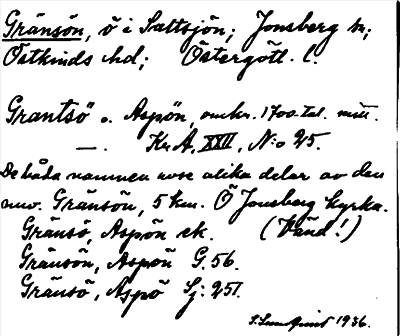 Gränsön, ö i Saltsjön; Jonsberg sn;
Östkinds hd; Östergötl. l.
Grantsö o. Aspön, omkr. 1700-tal. mitt.
—. Kr A, XXII, N:o 25.
De båda namnen avse olika delar av den
nuv. Gränsön, 5 km. Ö Jonsberg kyrka.
Gränsö, Aspön ek. (Vänd!)
Gränsön, Aspön G. 56.
Gränsö, Aspö Sj: 251.
S. Lundquist 1936.